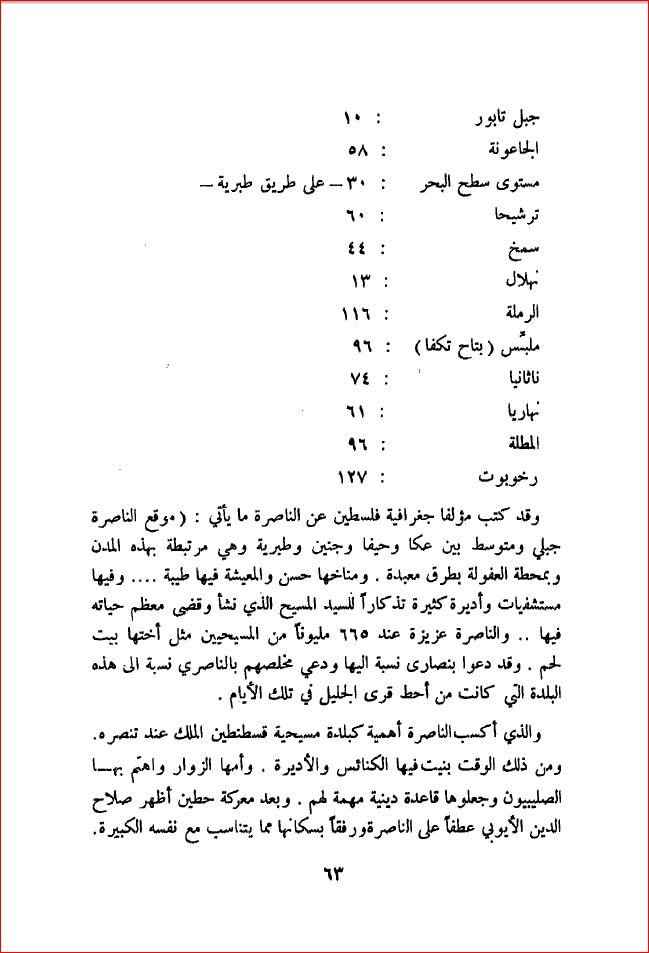 جبل تابور : ١٠
الجاعونة : ٥٨
مستوى سطح البحر : ٣٠ – على طريق طبرية –
ترشيحا : ٦٠
سمخ : ٤٤
نهلال : ١٣
الرملة : ١١٦
ملبّس ( بتاح تكفا ) : ٩٦
ناثانيا : ٧٤
نهاريا : ٦١
المطلة : ٩٦
رخوبوت : ١٢٧
وقد كتب مؤلفا جغرافية فلسطين عن الناصرة ما يأتي : ( موقع الناصرة
جبلي ومتوسط بين عكا وحيفا وجنين وطبرية وهي مرتبطة بهذه المدن
وبمحطة العفولة بطرق معبدة . ومناخها حسن والمعيشة فيها طيبة .... وفيها
مستشفيات وأديرة كثيرة تذكاراً للسيد المسيح الذي نشأ وقضى معظم حياته
فيها .. والناصرة عزيزة عند ٦٦٥ مليوناً من المسيحيين مثل أختها بيت
لحم . وقد دعوا بنصارى نسبة اليها ودعي مخلصهم بالناصري نسبة الى هذه
البلدة التي كانت من أحط قرى الجليل في تلك الأيام .
والذي أكسب الناصرة أهمية كبلدة مسيحية قسطنطين الملك عند تنصره.
ومن ذلك الوقت بنيت فيها الكنائس والأديرة . وأمها الزوار واهتم بهـــا
الصليبيون وجعلوها قاعدة دينية مهمة لهم . وبعد معركة حطين أظهر صلاح
الدين الأيوبي عطفاً على الناصرة ورفقاً بسكانها مما يتناسب مع نفسه الكبيرة.
٦٣